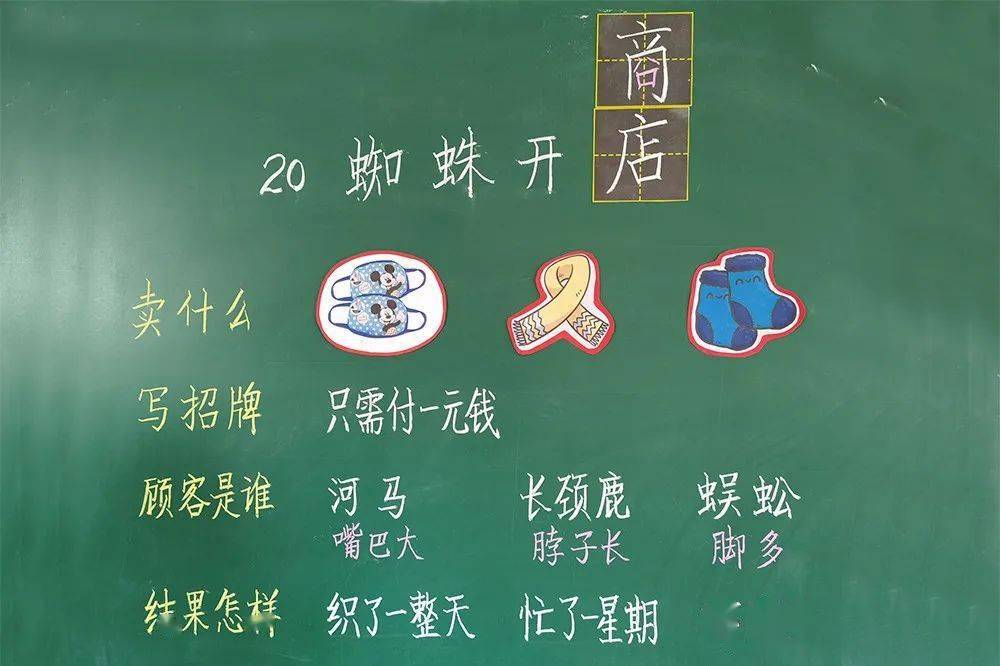 20 蜘蛛开商店
卖什么
写招牌 只需付一元钱
顾客是谁 河马 长颈鹿 蜈蚣
嘴巴大 脖子长 脚多
结果怎样 织了一整天 忙了一星期